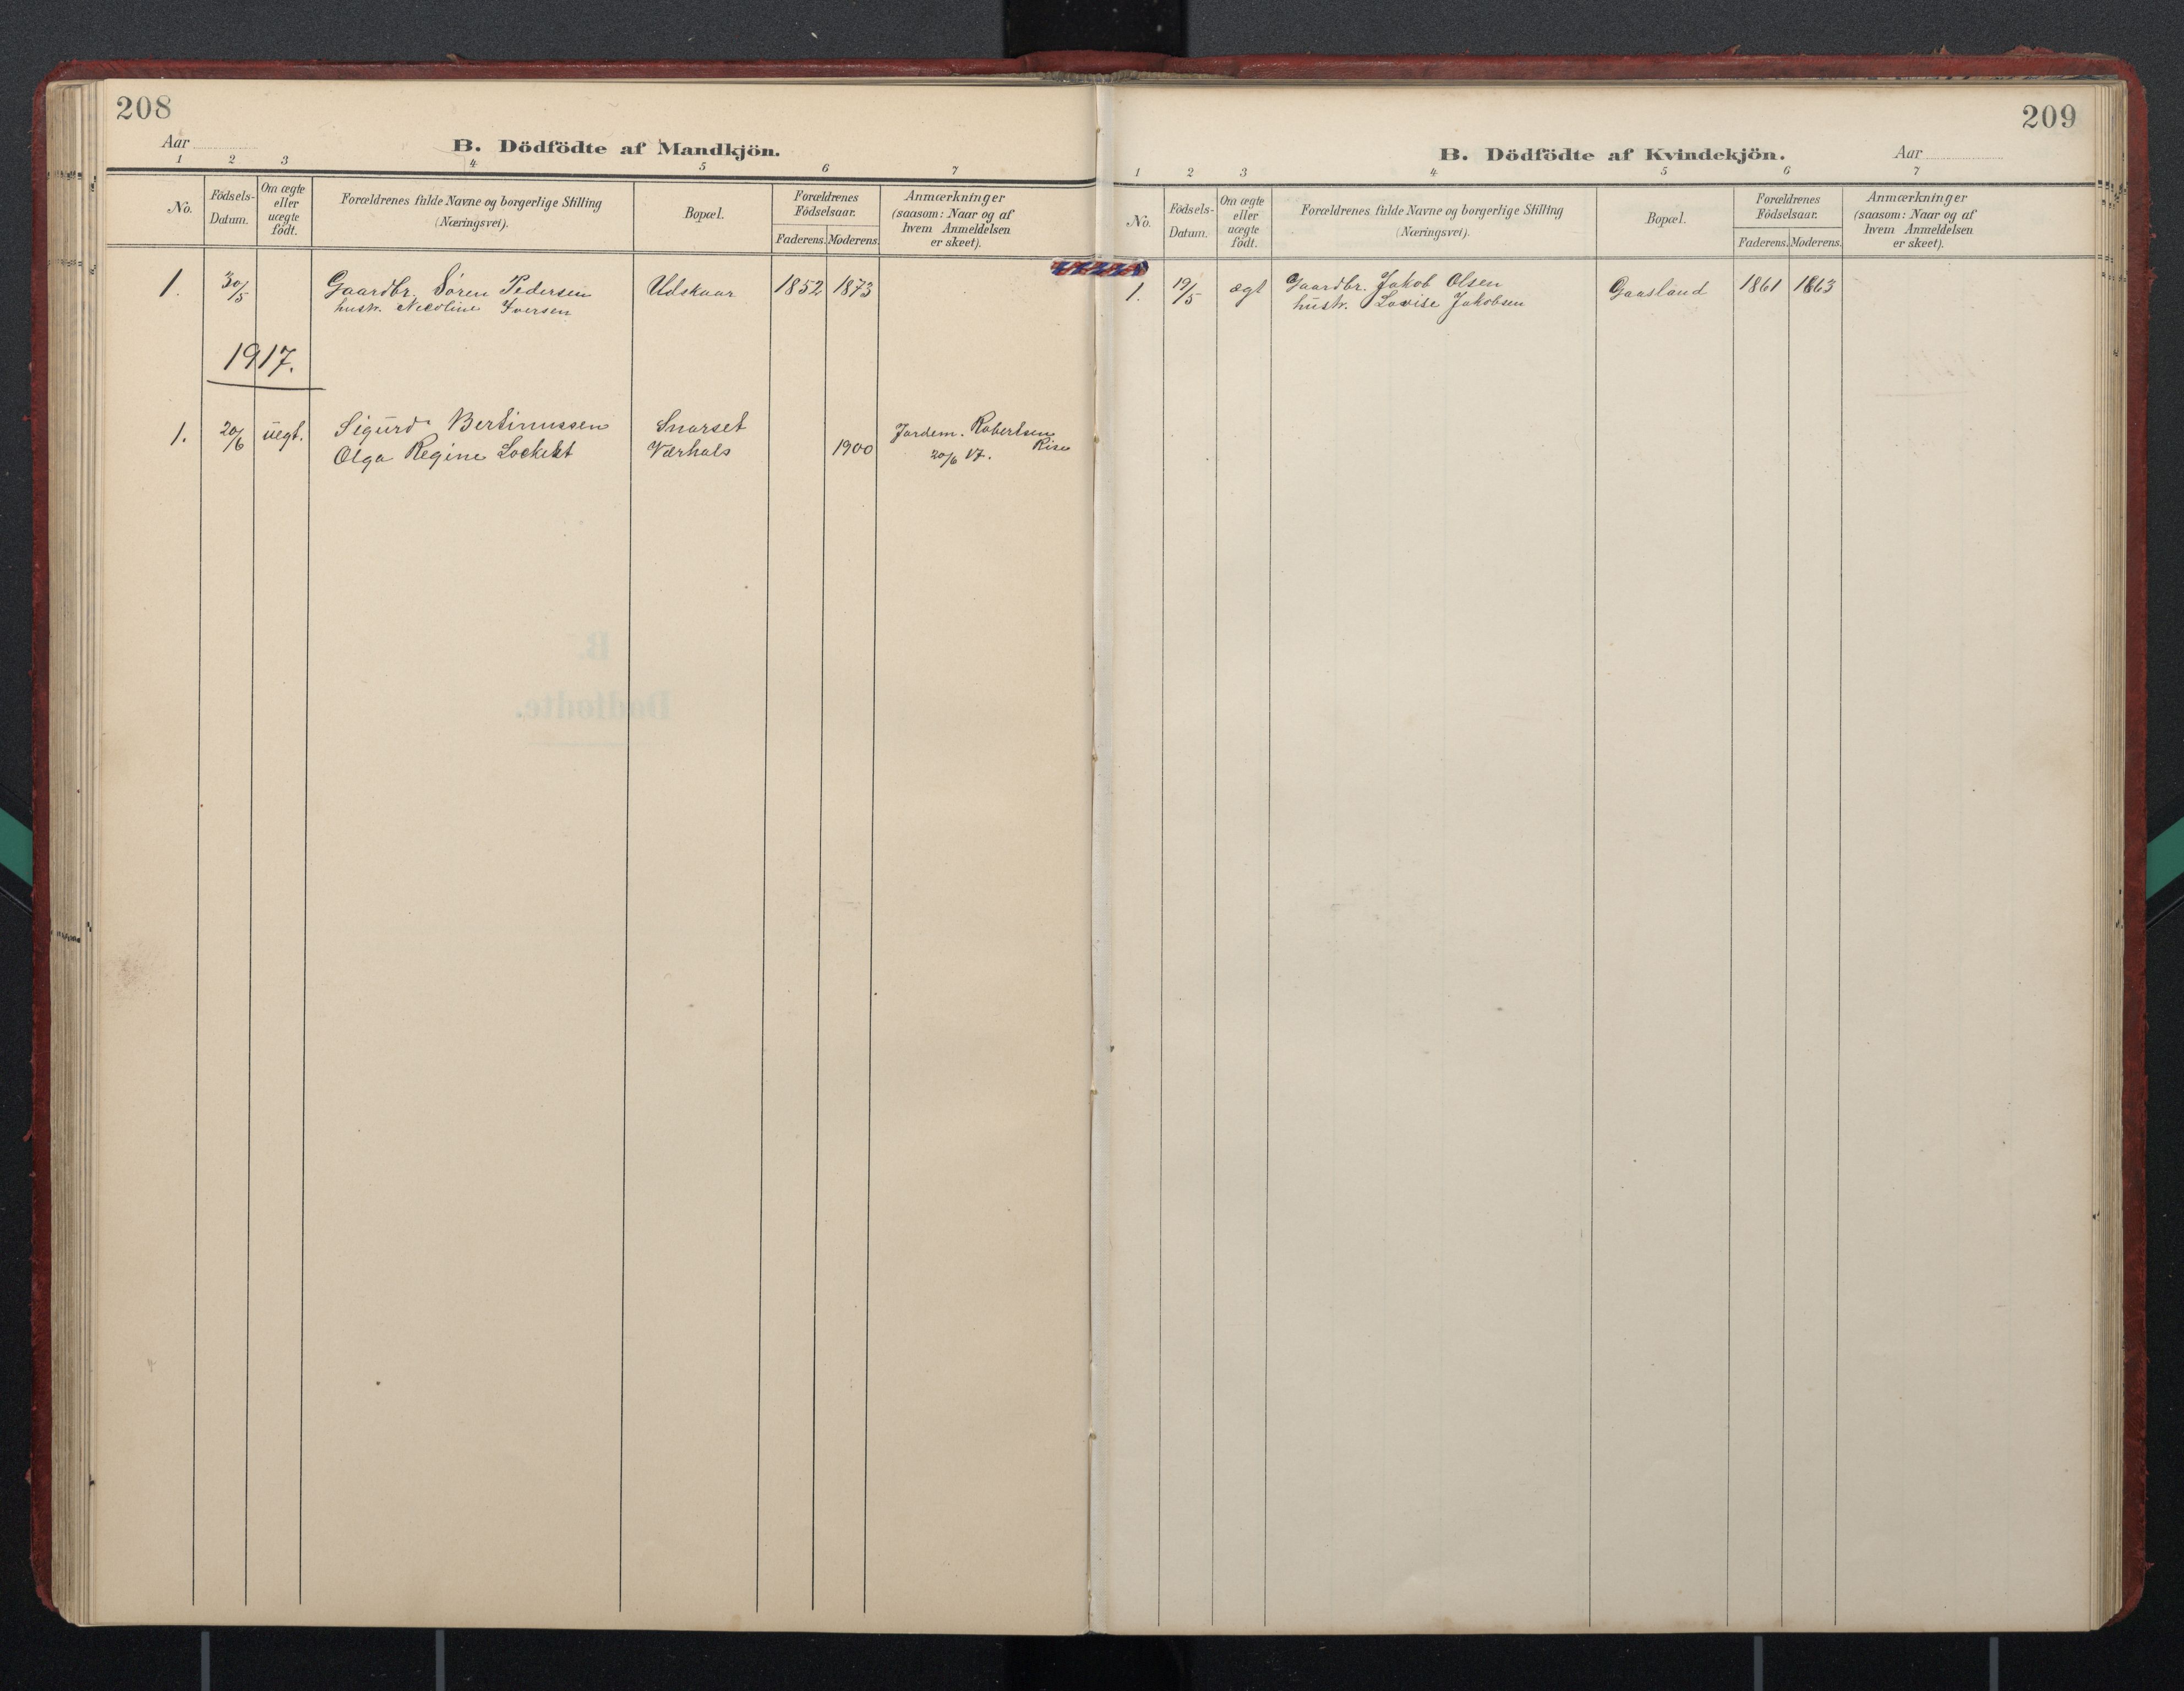 208
Aar
B. Dödfödte af Mandkjön.
1 2 3 4 5 6 7
No.
Födsels-Datum.
Om ægte eller uægte födt.
Forældrenes fulde Navne og borgerlige Stilling (Næringsvei).
Bopæl.
Forældrenes Födselsaar.
Faderens. Moderens.
Anmærkninger (saasom: Naar og af hvem Anmeldelsen er skeet).
1. 30/5 Gaardbr. Sören Pedersen Udskaar 1852 1873
hustr. Nicoline Iversen
1917.
1. 20/6 uegt. Sigurd Bertinussen Snarset Jordem. Robertsen
Olga Regine Værhals 1900 20/6 17.
209
B. Dödfödte af Kvindekjön.
Aar
1 2 3 4 5 6 7
No.
Födsels-Datum.
Om ægte eller uægte födt.
Forældrenes fulde Navne og borgerlige Stilling (Næringsvei).
Bopæl.
Forældrenes Födselsaar.
Faderens. Moderens.
Anmærkninger (saasom: Naar og af hvem Anmeldelsen er skeet).
1. 19/5 ægt Gaardbr. Jakob Olsen Gaasland 1861 1863
hustr. Lovise Jakobsen